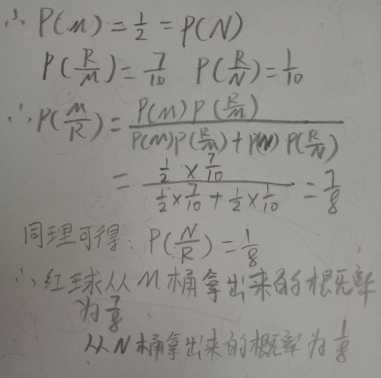 ∴ P(M) = 1/2 = P(N)
P(R/M) = 7/10 P(R/N) = 1/10
∴ P(M/R) = P(M)P(R/M) / P(M)P(R/M) + P(N)P(R/N)
= 1/2 × 7/10 / 1/2 × 7/10 + 1/2 × 1/10 = 7/8
同理可得: P(N/R) = 1/8
∴ 红球从M桶拿出来的概率
为 7/8
从N桶拿出来的概率为 1/8